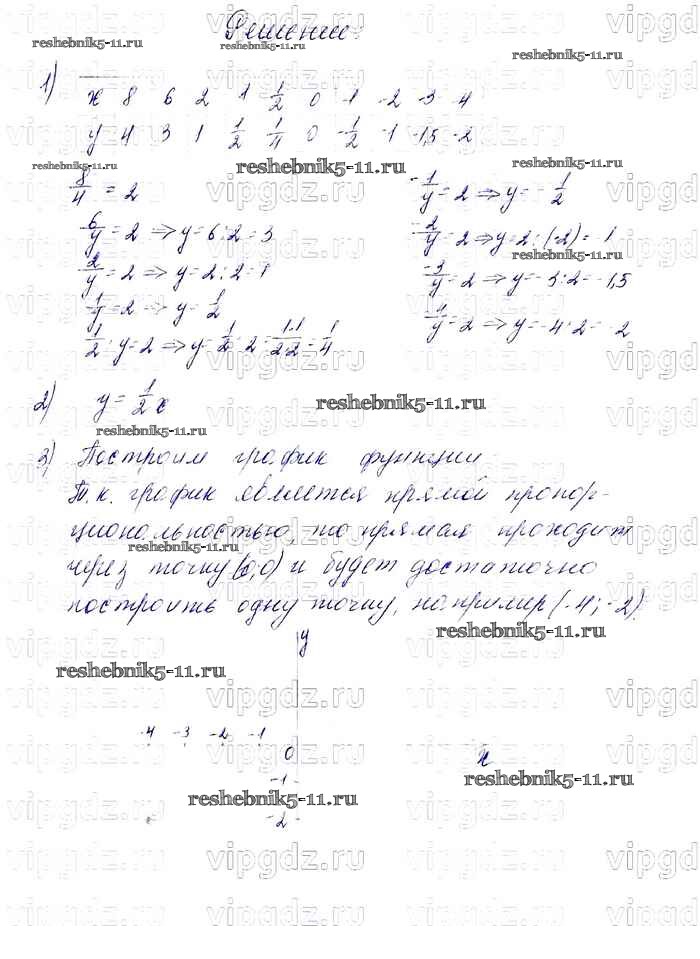 Решение:
reshebnik5-11.ru
reshebnik5-11.ru
reshebnik5-11.ru
1)
x 8 6 2 1 1/2 0 -1 -2 -3 -4
y 4 3 1 1/2 1/4 0 -1/2 -1 -1,5 -2
reshebnik5-11.ru
reshebnik5-11.ru
reshebnik5-11.ru
8/4 = 2
-1/y = 2 ⇒ y = -1/2
6/y = 2 ⇒ y = 6 : 2 = 3
-2/y = 2 ⇒ y = 2 : (-2) = 1
reshebnik5-11.ru
2/y = 2 ⇒ y = 2 : 2 = 1
-3/y = 2 ⇒ y = -3 : 2 = -1,5
1/y = 2 ⇒ y = 1/2
1/2 : y = 2 ⇒ y = 1/2 : 2 = 1·1/2·2 = 1/4
⇒ y = -4 : 2 = -2
2) y = 1/2 x
reshebnik5-11.ru
reshebnik5-11.ru
3) Построим график функции.
Т.к. график является прямой пропор-
циональностью, то прямая проходит
reshebnik5-11.ru
через точку (0;0) и будет достаточно
построить одну точку, например (-4; -2).
reshebnik5-11.ru
y
reshebnik5-11.ru
-4 -3 -2 -1
0
x
-1
reshebnik5-11.ru
reshebnik5-11.ru
-2
vipgdz.ru